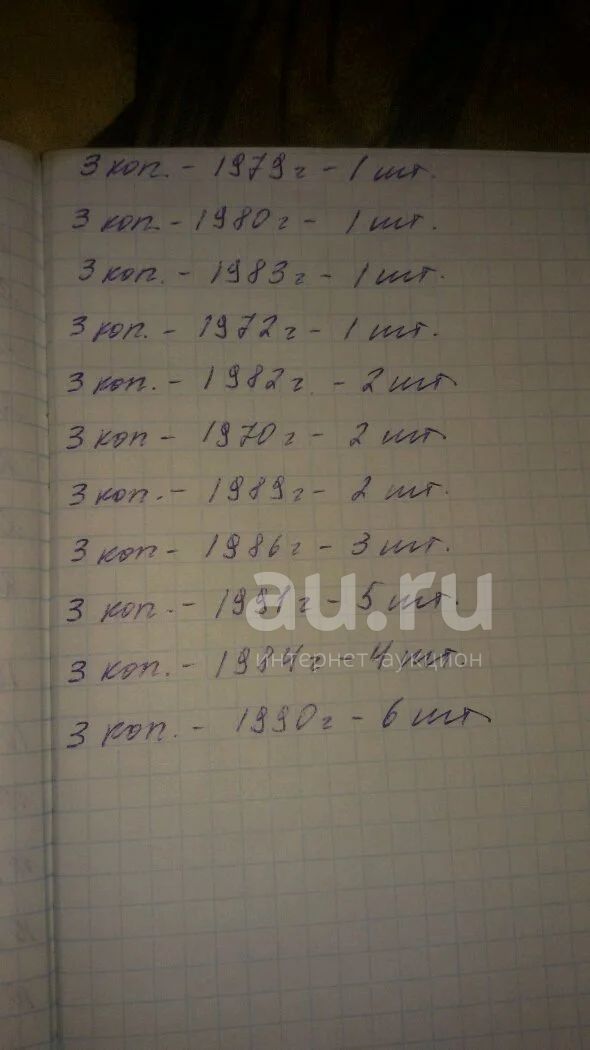 3 коп. - 1979г - 1 шт.
3 коп. - 1980г - 1 шт.
3 коп. - 1983г - 1 шт.
3 коп. - 1972г - 1 шт.
3 коп. - 1982г. - 2 шт
3 коп - 1970г - 2 шт.
3 коп. - 1989г - 2 шт.
3 коп - 1986г - 3 шт.
3 коп. - 1991г - 5 шт.
au.ru
интернет аукцион
3 коп. - 1984г - 4 шт.
3 коп. - 1990г - 6 шт